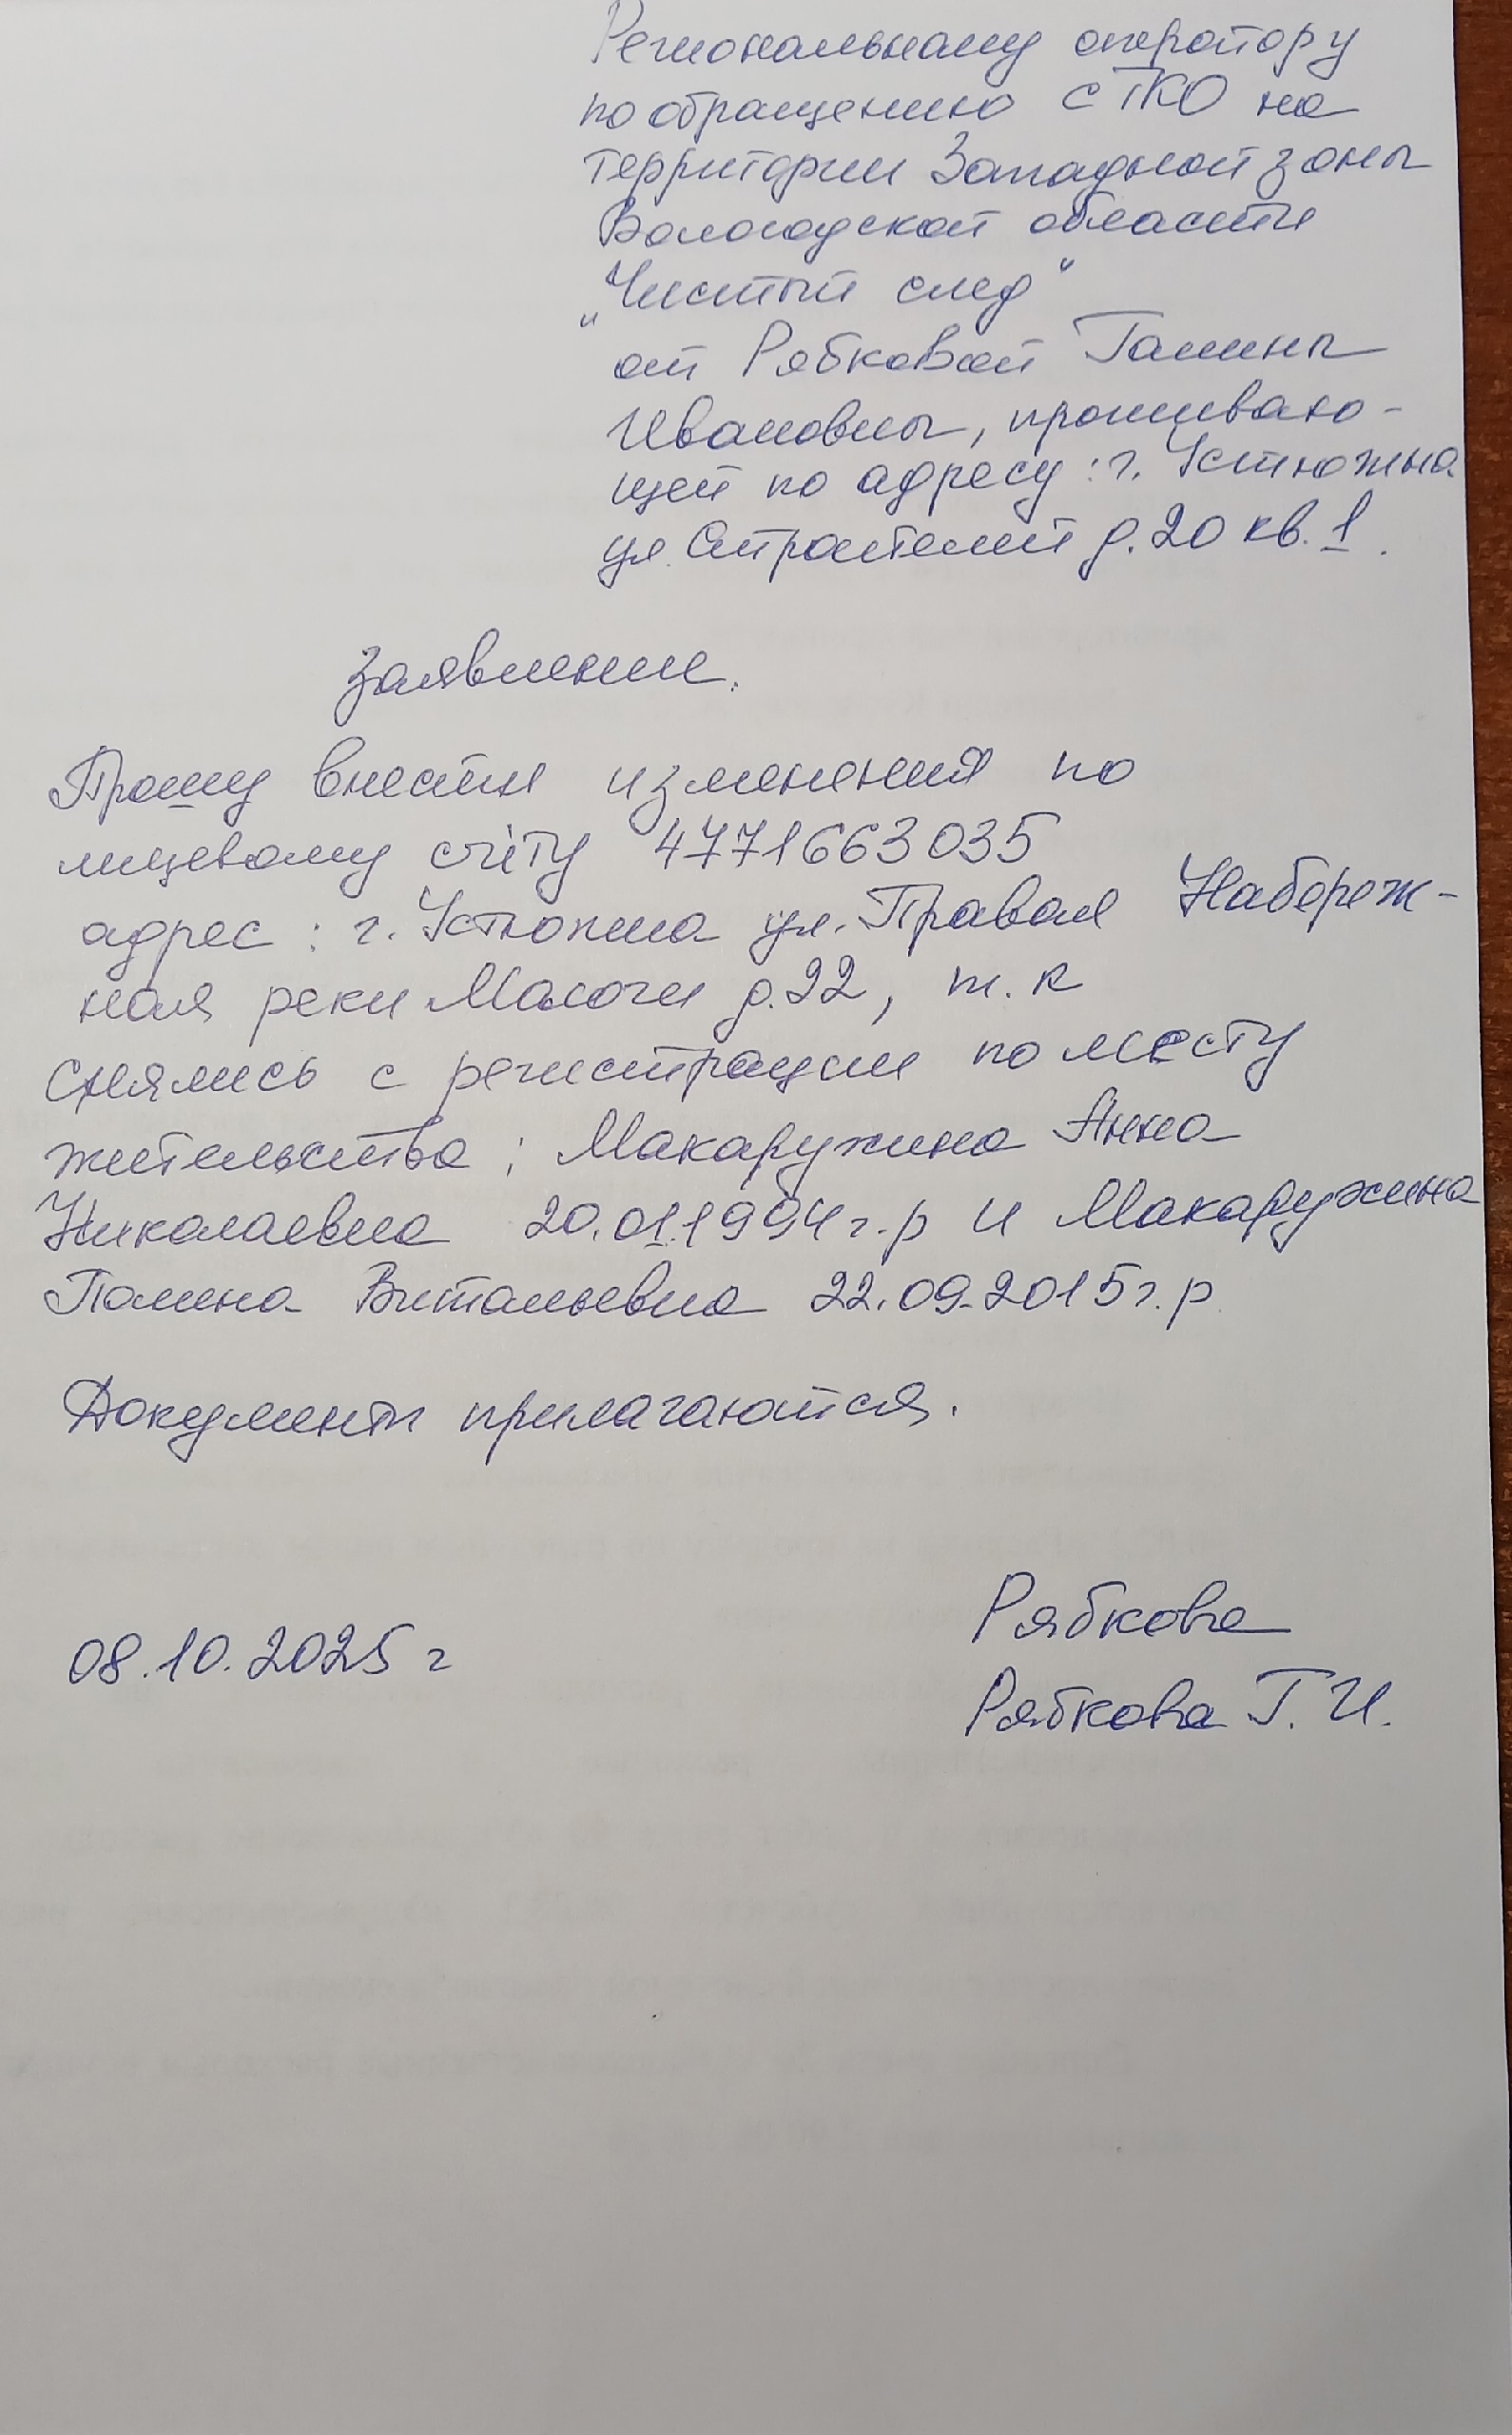 Региональному оператору
по обращению с ТКО на
территории Западной зоны
Вологодской области
„Чистый след"
от Рябковой Галины
Ивановны, проживаю-
щей по адресу: г. Устюжна
ул. Строителей д. 20 кв. 1.
Заявление.
Прошу внести изменения по
лицевому счёту 4771663035
адрес: г. Устюжна ул. Правая Набереж-
ная реки Мологи д. 22, т.к
снялись с регистрации по месту
жительства: Макаружина Анна
Николаевна 20.01.1994 г.р и Макаружина
Полина Витальевна 22.09.2015 г.р
Документы прилагаются.
Рябкова
08.10.2025 г
Рябкова Г.И.